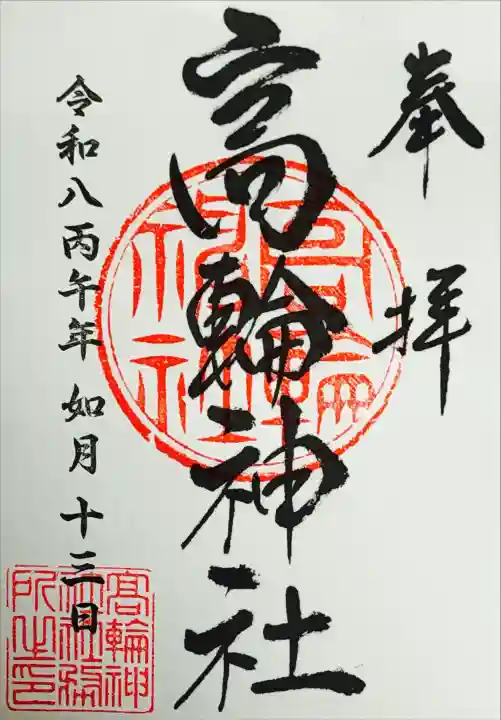 奉拝
高輪神社
令和八丙午年 如月十三日
高輪神社
高輪神社社務所之印